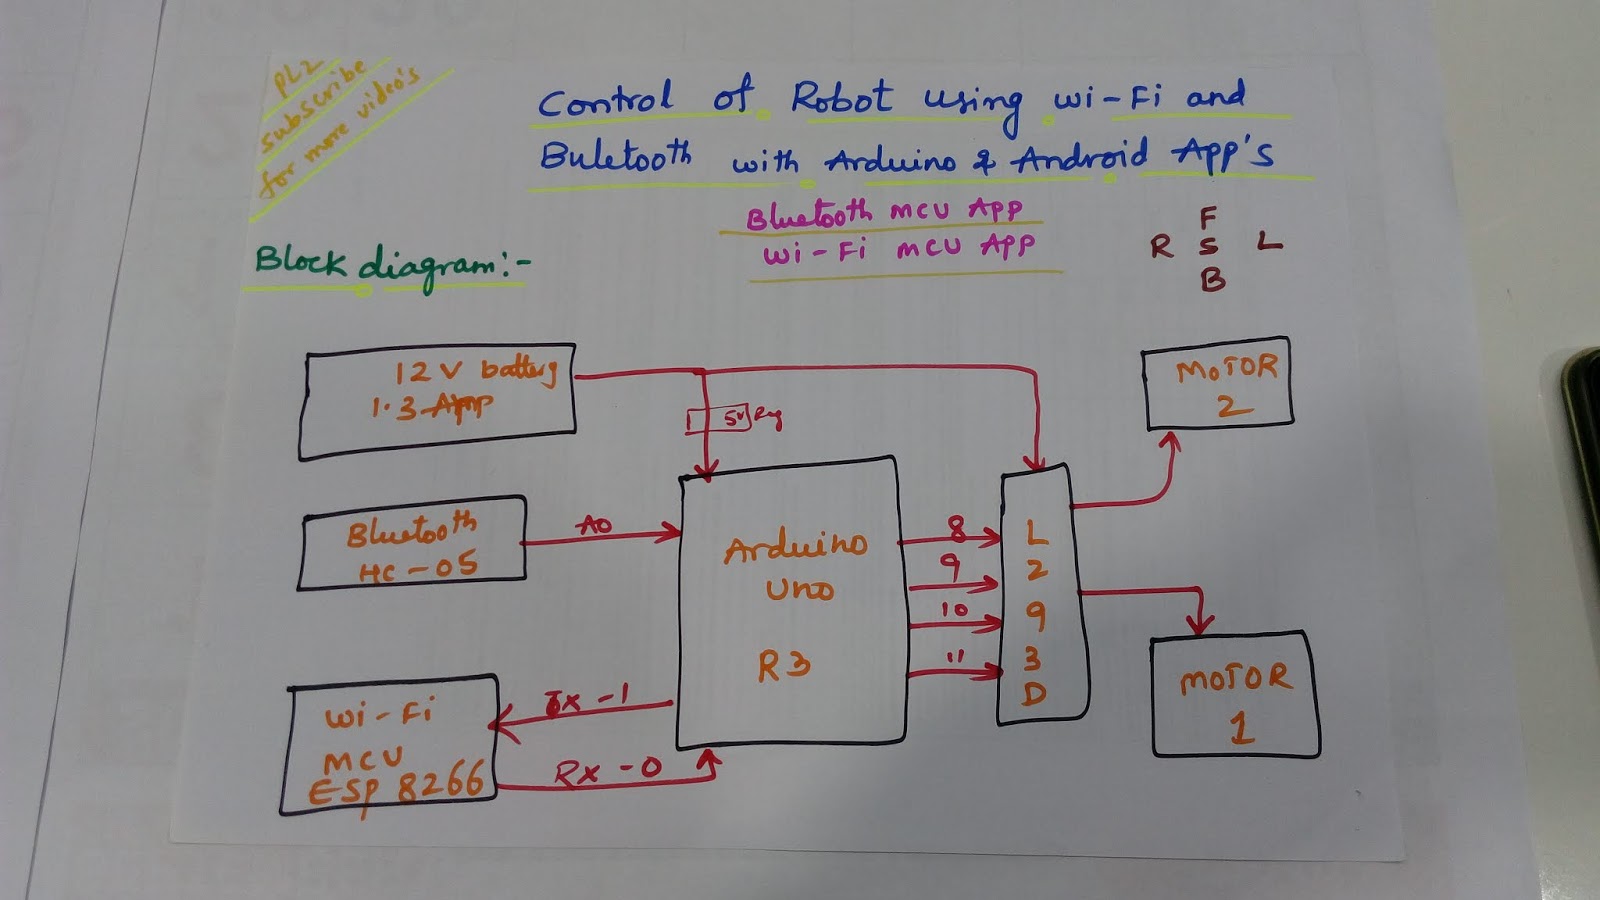 PLZ
subscribe
for more video's
Control of Robot using wi-Fi and
Buletooth with Arduino & Android App's
Bluetooth MCU App
Wi-Fi MCU App
F
R S L
B
Block diagram:-
12V battery
1.3-Amp
5V Reg
MOTOR
2
Bluetooth
HC-05
A0
Arduino
Uno
R3
8
9
10
11
L
2
9
3
D
MOTOR
1
Wi-Fi
MCU
ESP 8266
Tx-1
Rx-0